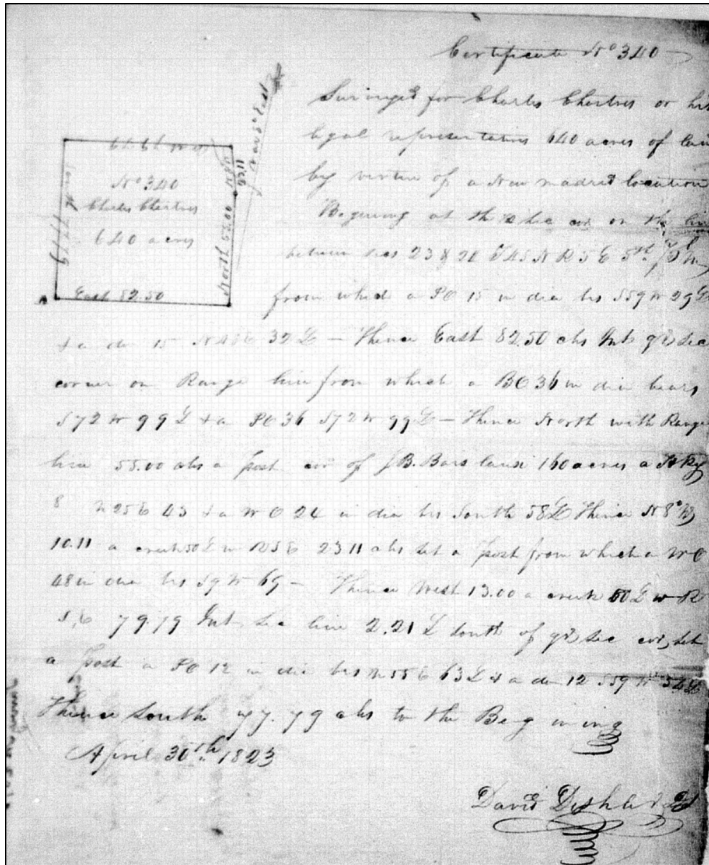 Certificate No 340
Surveyed for Charles Chartres or his
legal representatives 640 acres of lan
by virtue of a New madrid location
Begining at the sec cor on the line
between secs 23 & T45 N R 5 E 5th
from which a PO 15 in dia brs S59 W 29 L
& a do 15 N45E 32 L — Thence East 82.50 chs Int qr Sec
corner on Range line from which a BO 36 in dia bears
S72 W 99 L & a PO 36 S72 W 99 L — Thence North with Range
line 55.00 chs a post cor of J B. Bars 160 acres a
8 N25E 43 & a W O 24 in dia brs South 58 L Thence N 8°
10.11 a creek 50 L w 23 11 chs set a post from which a W O
48 in dia brs S9 W 69 — Thence West 13.00 a creek 50 L w R
S E 79.79 Int Sec line 2.21 L South of qr Sec cor, set
a post a PO 12 in dia brs N55E 63 L & a do 12 S59 W 34 L
Thence South 77.79 chs to the Begining
April 30th 1823
David
No 340
Charles Chartres
640 acres
East 82.50
North 55.00